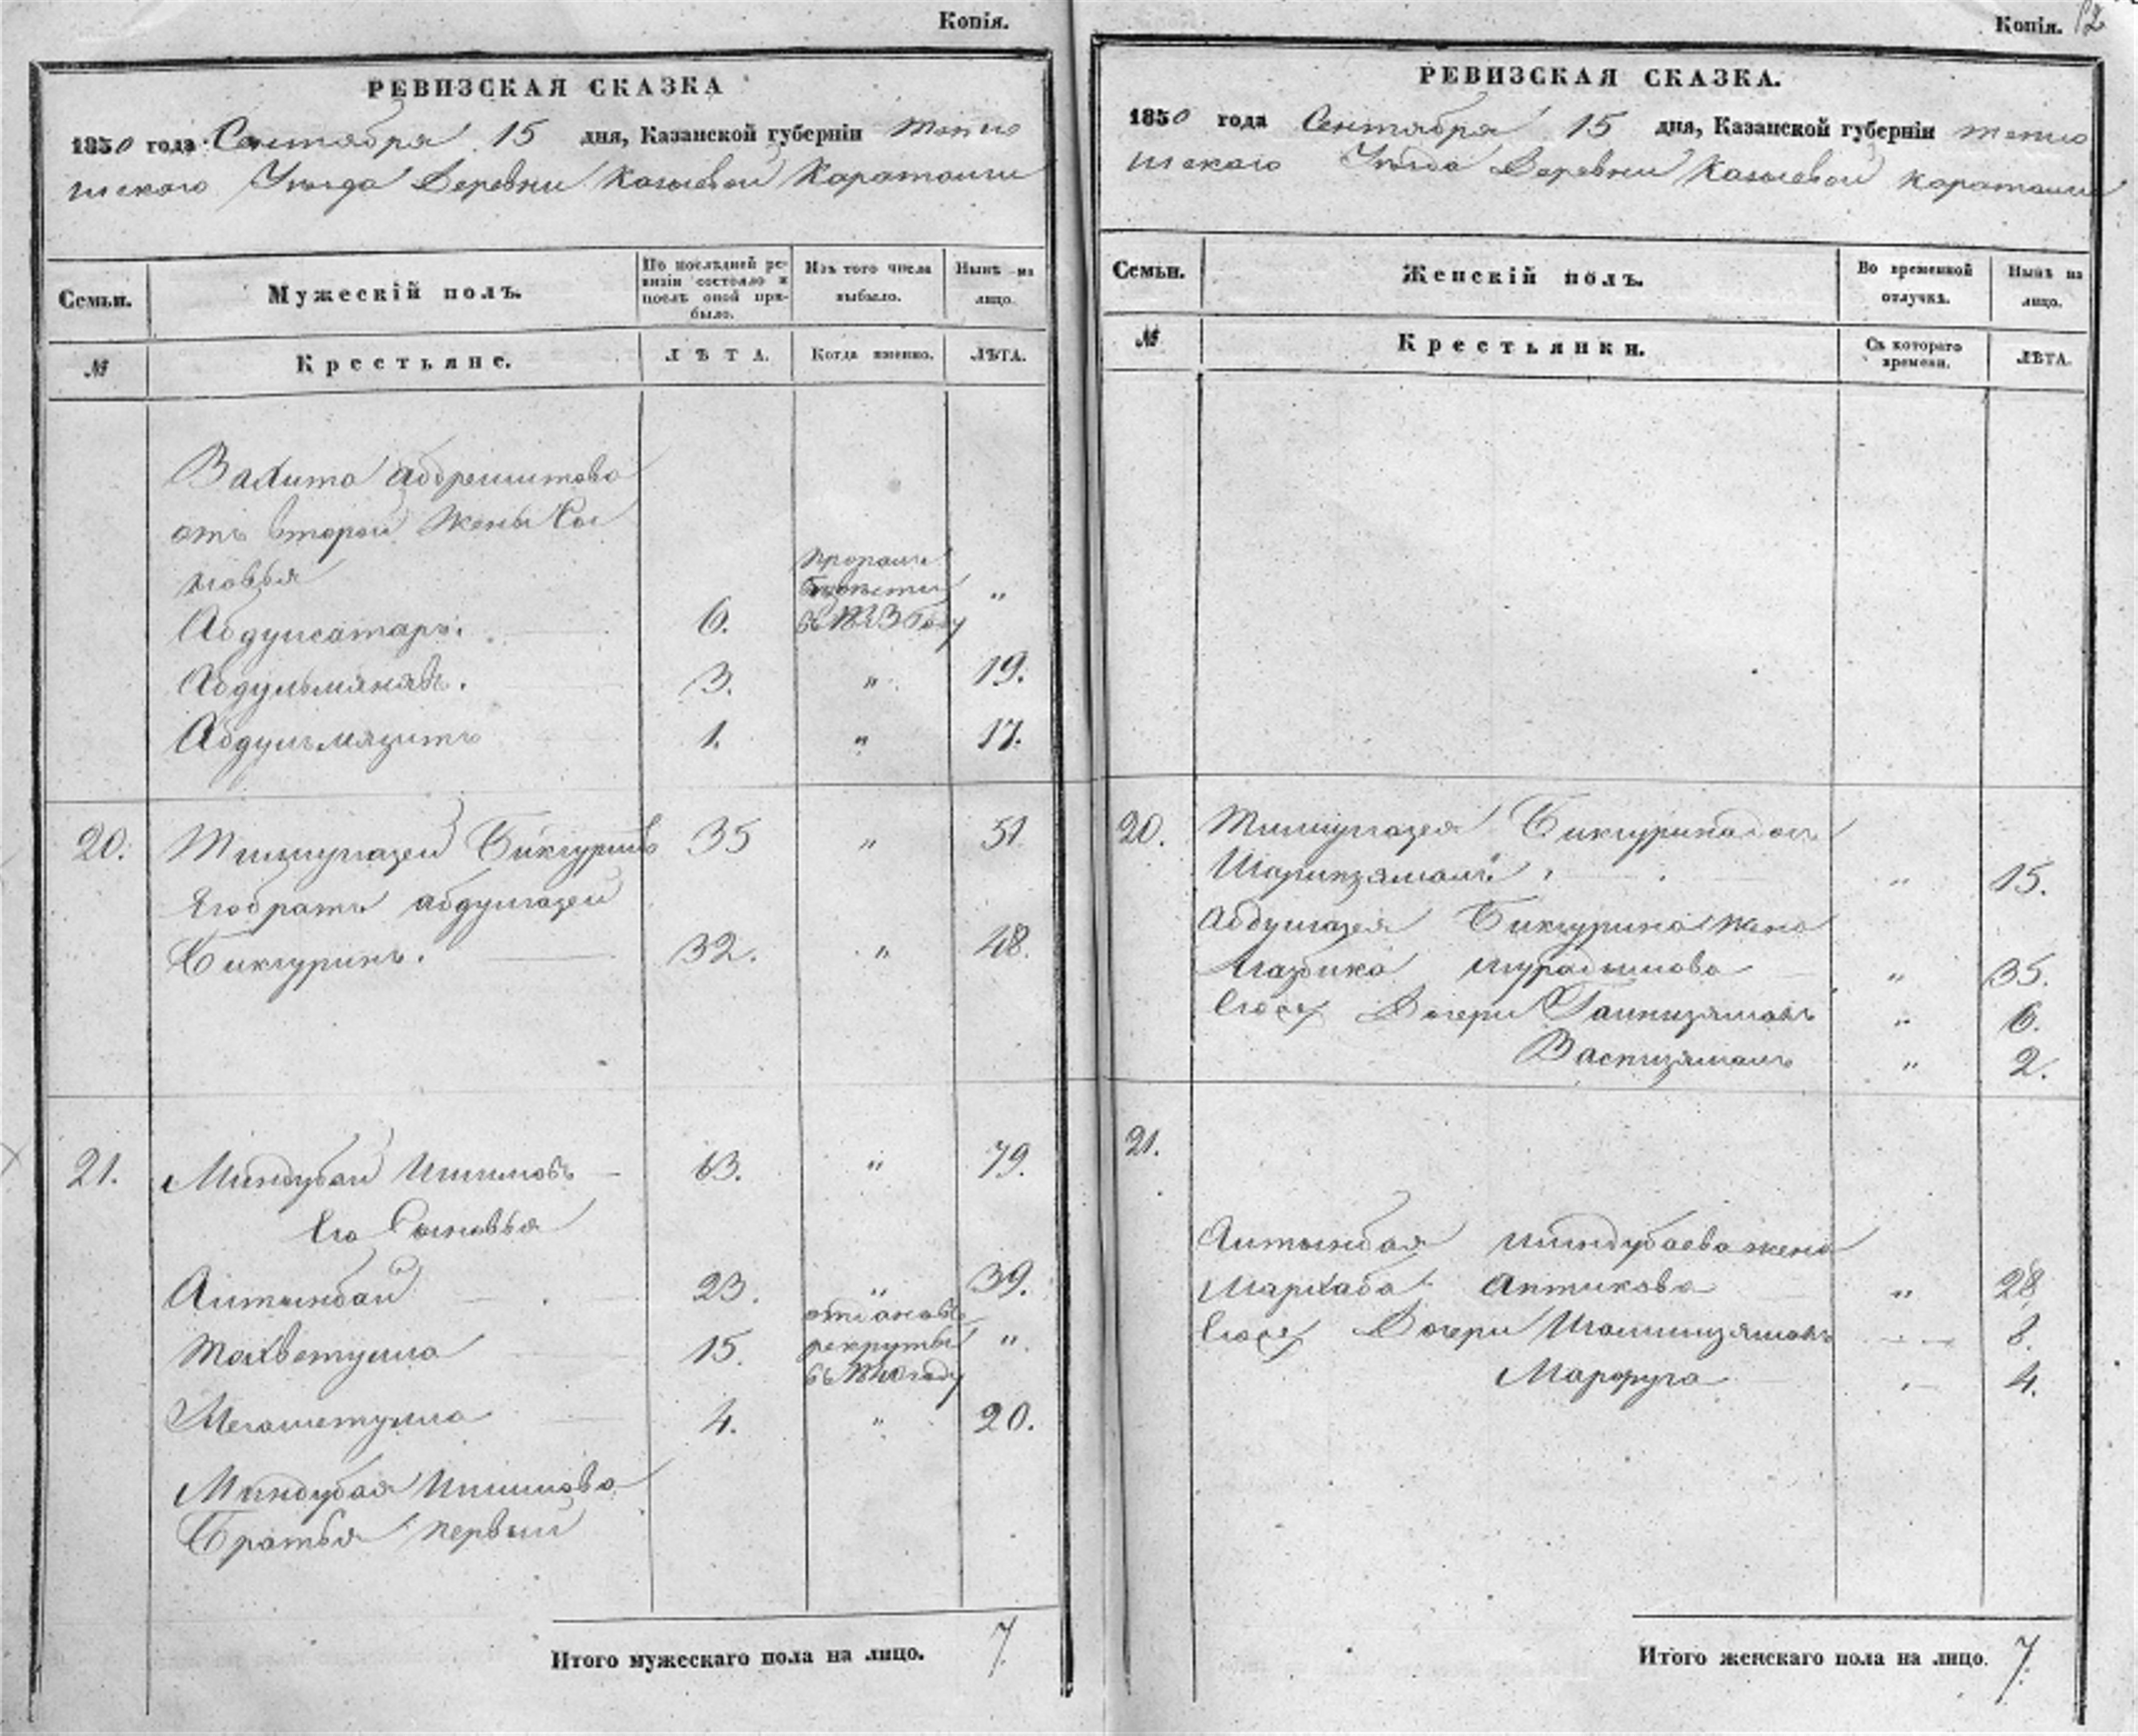 Копія.
РЕВИЗСКАЯ СКАЗКА
1850 года Сентября 15 дня, Казанской губерніи Тетю
шскаго Уѣзда Деревни Караташи
Семьи.
Мужескій полъ.
По послѣдней ре-
визіи состояло и
послѣ оной при-
было.
Изъ того числа
выбыло.
Нынѣ на
лицо.
№
Крестьяне.
ЛѢТА.
Когда именно.
ЛѢТА.
Вахита Абдрешитова
отъ второй жены Сы
новья
Абдулсатаръ. 6. "
Абдульмянявъ. 3. " 19.
Абдульмязитъ 1. " 17.
20. Бикчуринъ 35 " 51
Его братъ Абдулгазеи
Бикчуринъ. 32. " 48.
21. Миндубай Ишимовъ 63. " 79.
Его Сыновья
Алтынбай 23. " 39.
отданъ въ
Тохветулла 15. рекруты "
въ 1840 году
Мегаметулла 4. " 20.
Миндубая Ишимова
Братья первый
Итого мужескаго пола на лицо. 7.
Копія. 12
РЕВИЗСКАЯ СКАЗКА.
1850 года Сентября 15 дня, Казанской губерніи Тетю
шскаго Уѣзда Деревни Караташи
Семьи.
Женскій полъ.
Во временной
отлучкѣ.
Нынѣ на
лицо.
№
Крестьянки.
Съ котораго
времени.
ЛѢТА.
20. Бикчурина дочь
Шарипзямалъ " 15.
Абдулгазея Бикчурина жена
Мурадымова " 35.
Ея Дочери " 6.
Васпизямалъ " 2.
21.
Алтынбая Миндубаева жена
Мархаба Аптикова " 28
Дочери Шамшизямалъ 8.
Марфуга " 4.
Итого женскаго пола на лицо. 7.